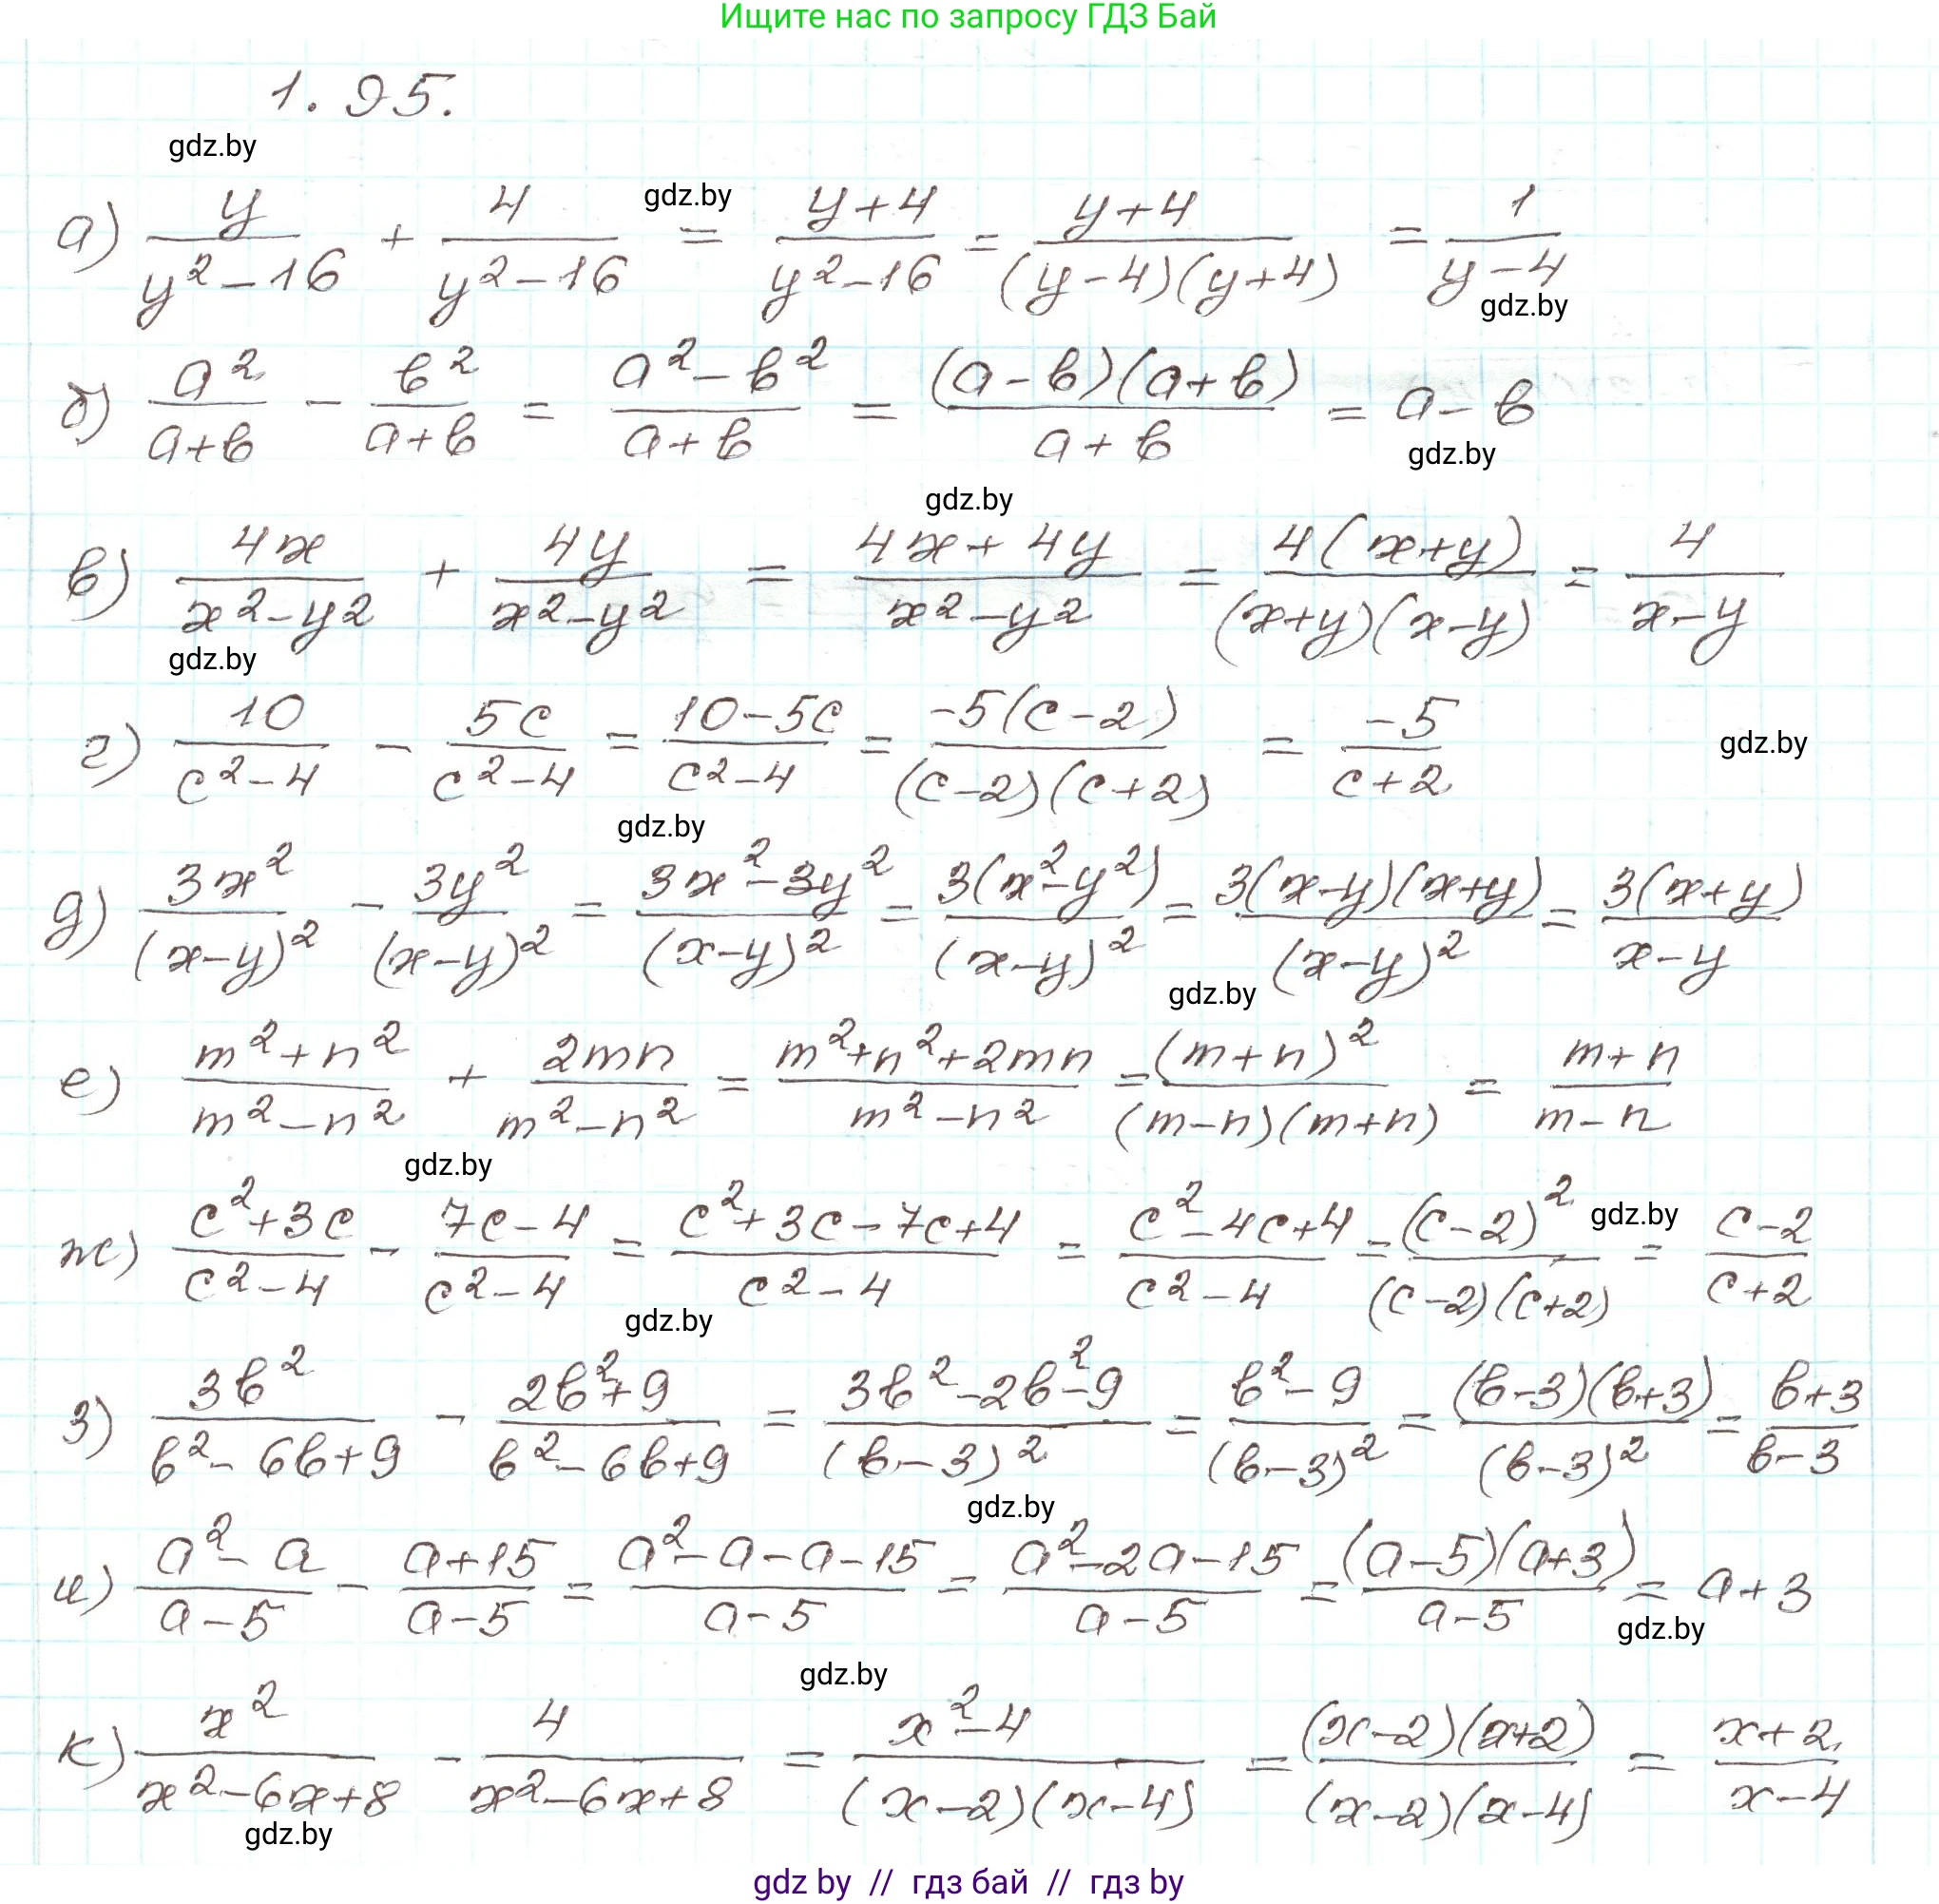 Ищите нас по запросу ГДЗ Бай
1.95.
gdz.by
gdz.by
а) y/(y²-16) + 4/(y²-16) = (y+4)/(y²-16) = (y+4)/((y-4)(y+4)) = 1/(y-4)
gdz.by
б) a²/(a+b) - b²/(a+b) = (a²-b²)/(a+b) = ((a-b)(a+b))/(a+b) = a-b
gdz.by
gdz.by
в) 4x/(x²-y²) + 4y/(x²-y²) = (4x+4y)/(x²-y²) = (4(x+y))/((x+y)(x-y)) = 4/(x-y)
gdz.by
г) 10/(c²-4) - 5c/(c²-4) = (10-5c)/(c²-4) = (-5(c-2))/((c-2)(c+2)) = -5/(c+2)
gdz.by
gdz.by
д) 3x²/(x-y)² - 3y²/(x-y)² = (3x²-3y²)/(x-y)² = (3(x²-y²))/(x-y)² = (3(x-y)(x+y))/(x-y)² = (3(x+y))/(x-y)
gdz.by
е) (m²+n²)/(m²-n²) + 2mn/(m²-n²) = (m²+n²+2mn)/(m²-n²) = (m+n)²/((m-n)(m+n)) = (m+n)/(m-n)
gdz.by
ж) (c²+3c)/(c²-4) - (7c-4)/(c²-4) = (c²+3c-7c+4)/(c²-4) = (c²-4c+4)/(c²-4) = (c-2)²/((c-2)(c+2)) = (c-2)/(c+2)
gdz.by
gdz.by
з) 3b²/(b²-6b+9) - (2b²+9)/(b²-6b+9) = (3b²-2b²-9)/(b-3)² = (b²-9)/(b-3)² = ((b-3)(b+3))/(b-3)² = (b+3)/(b-3)
gdz.by
и) (a²-a)/(a-5) - (a+15)/(a-5) = (a²-a-a-15)/(a-5) = (a²-2a-15)/(a-5) = ((a-5)(a+3))/(a-5) = a+3
gdz.by
gdz.by
к) x²/(x²-6x+8) - 4/(x²-6x+8) = (x²-4)/((x-2)(x-4)) = ((x-2)(x+2))/((x-2)(x-4)) = (x+2)/(x-4)
gdz.by
gdz by // гдз бай // гдз by